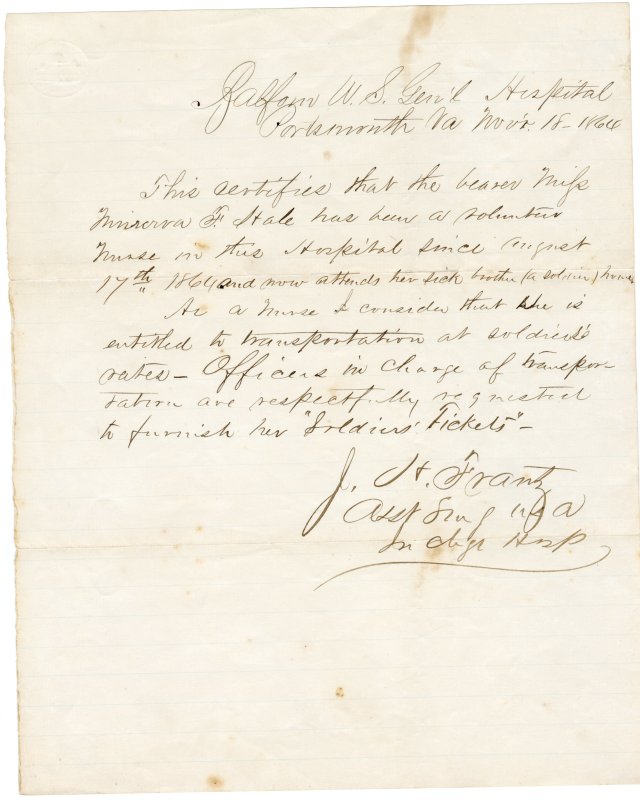 Balfour U.S. Gen'l Hospital
Portsmouth Va Nov'r. 18-1864
This certifies that the bearer Miss
Minerva F. Hale has been a volunteer
Nurse in this Hospital since August
17th 1864 and now attends her sick brother (a soldier) home
As a Nurse I consider that she is
entitled to transportation at soldiers'
rates – Officers in charge of transpor-
tation are respectfully requested
to furnish her "Soldiers' Tickets" –
J. H. Frantz
Asst Surg USA
In chge Hosp